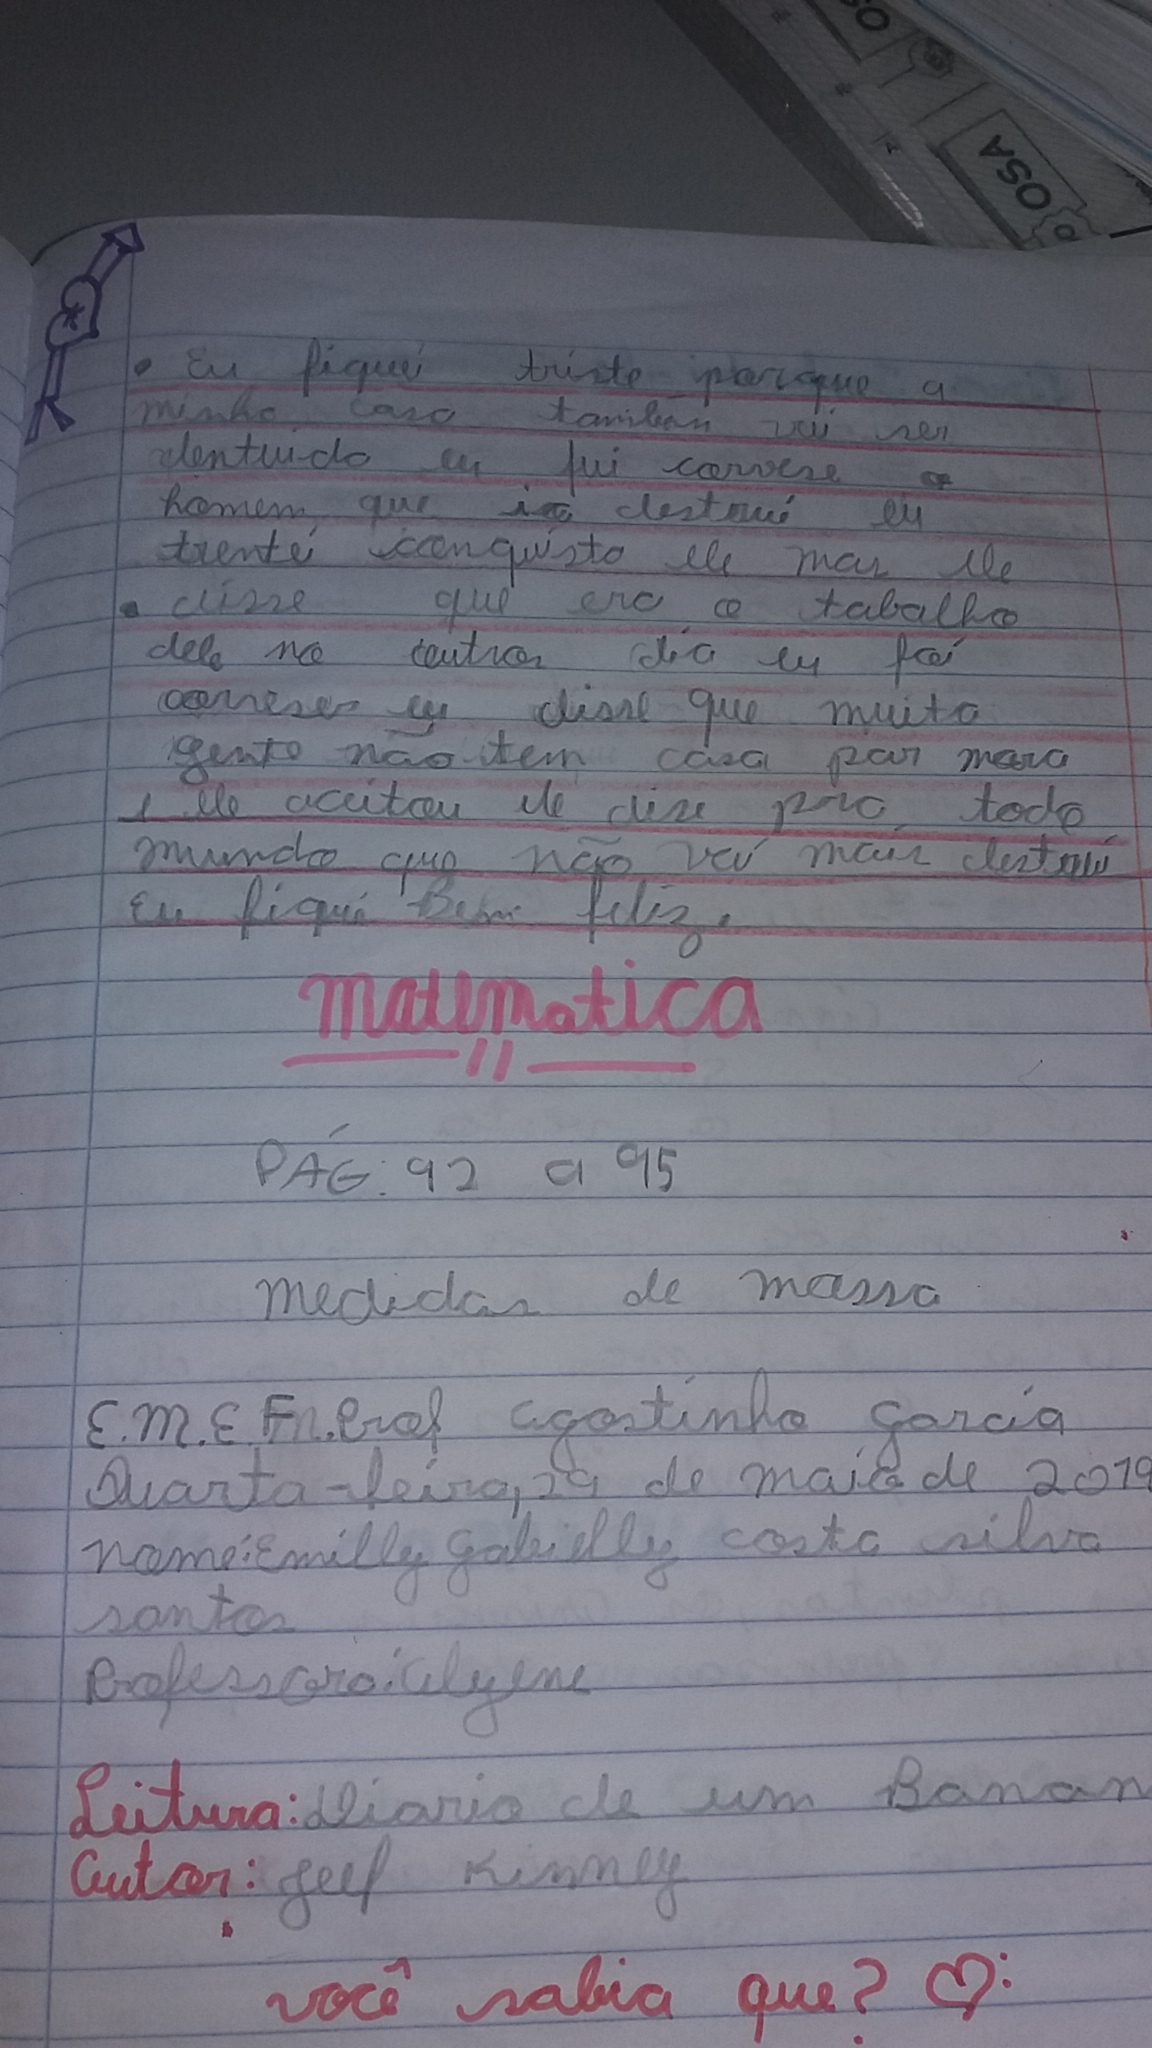 OSA
Eu fiqué triste porque a
minha casa tambén vai ser
dentuida eu fui converse
homem que destrui eu
trenté conquista ele mas ele
disse que era o tabalho
dele no outros dia eu foi
eu disse que muita
gente não tem casa par mora
ele aceitou ele dise pra todo
mundo que não vai mais destrui
eu fiqué Bem feliz.
matematica
PÁG: 92 a 95
medidas de massa
E.M.E.F.M.Prof agostinho garcia
Quarta-feira, 29 de maio de 2019
nome: Emilly gabrielly costa silva
santos
Professora: Clyene
Leitura: Diario de um Banan
Autor: Jeef Kinney
você sabia que? ♡: